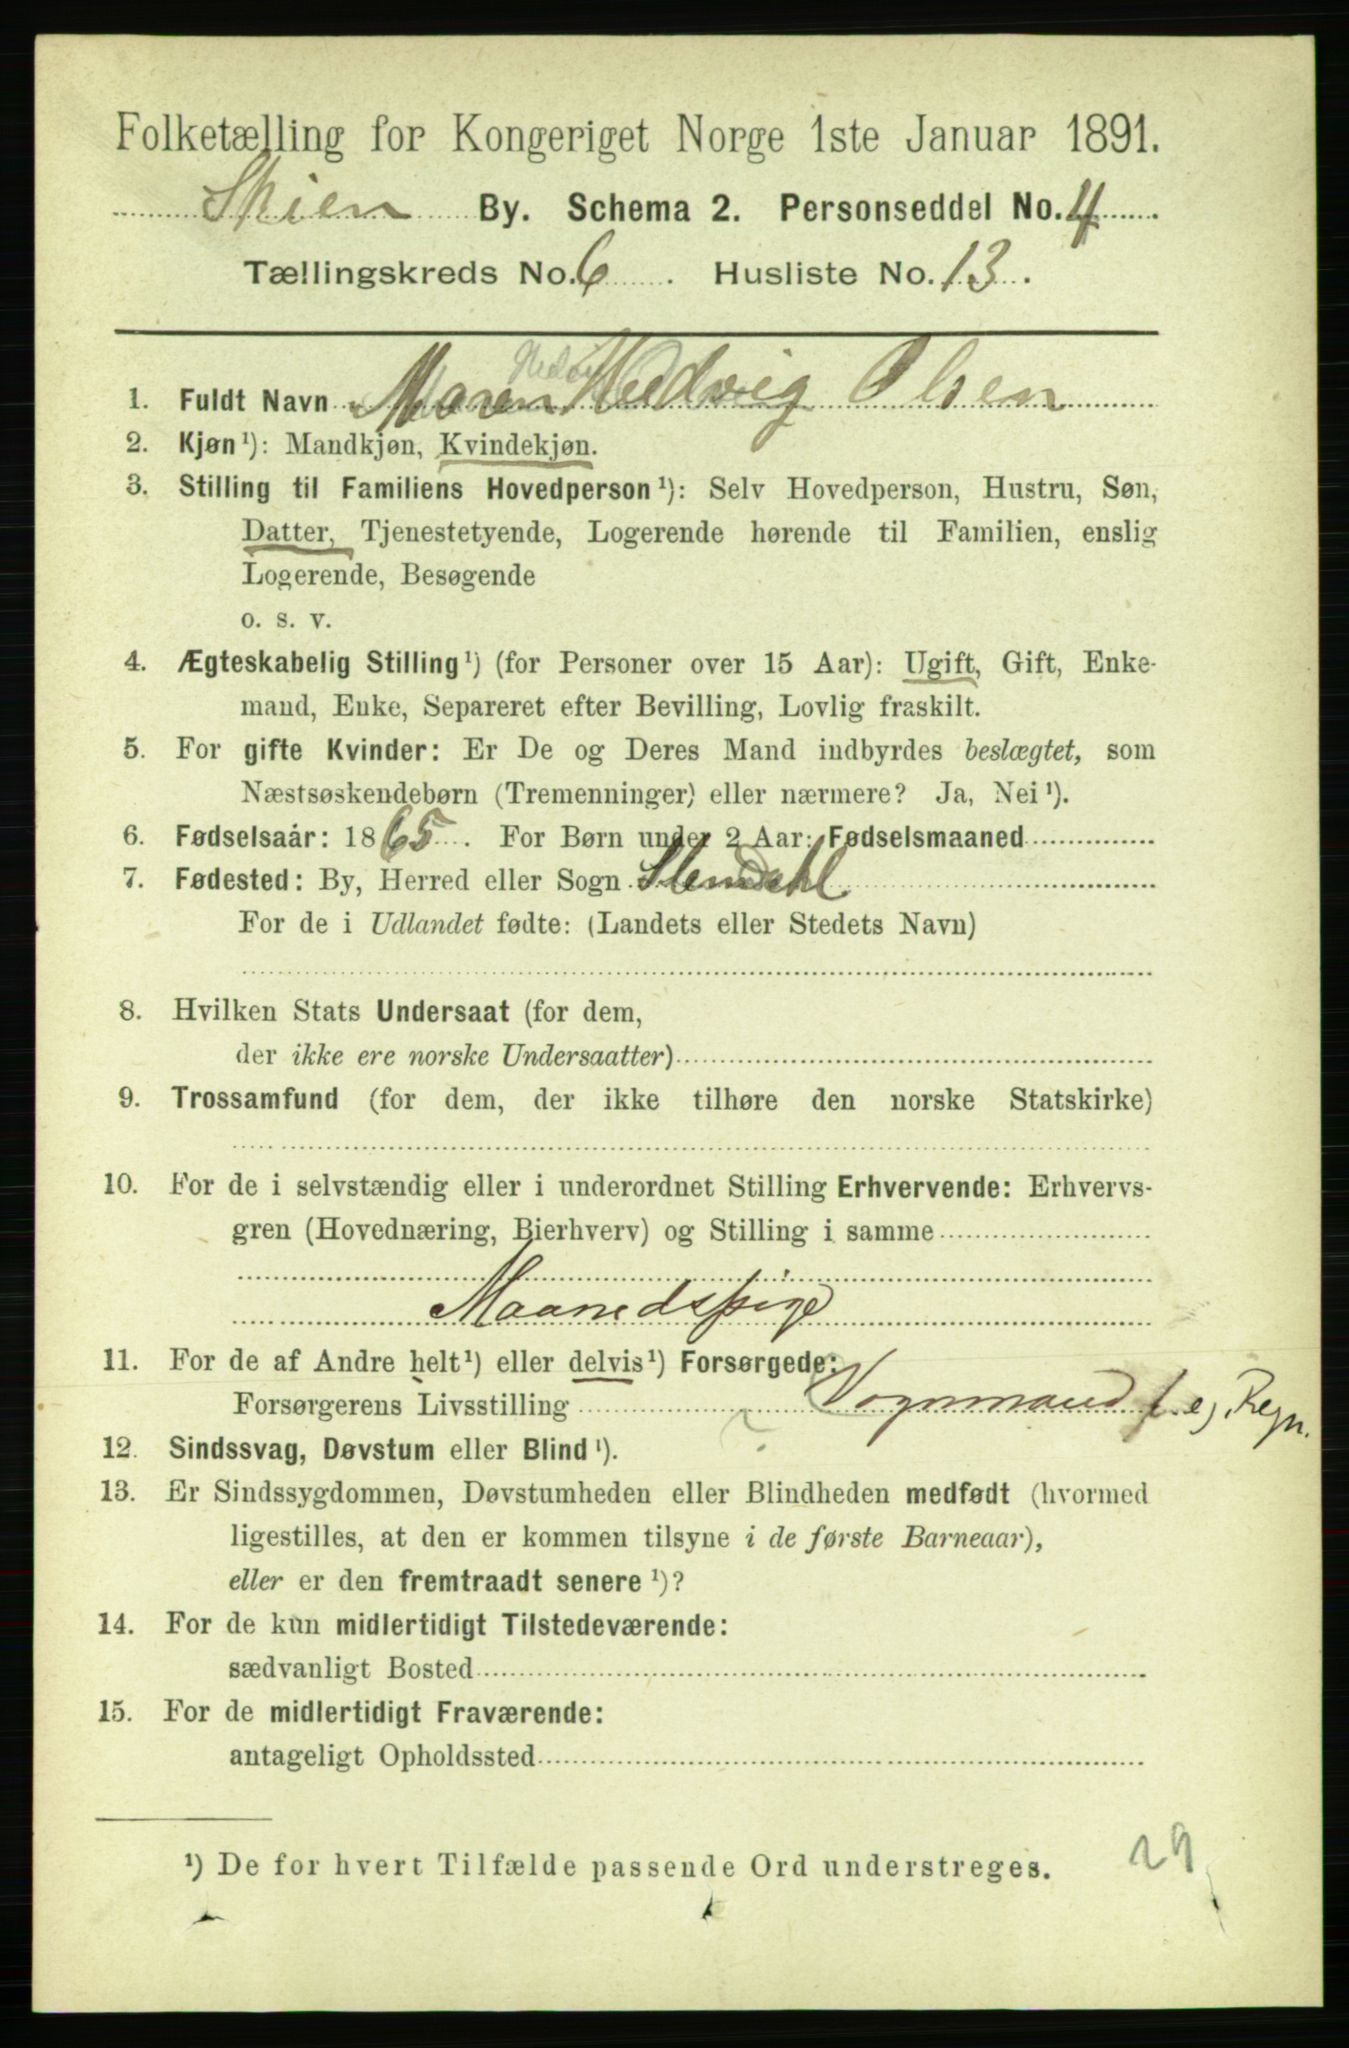 Folketælling for Kongeriget Norge 1ste Januar 1891.
Skien By. Schema 2. Personseddel No. 4
Tællingskreds No. 6. Husliste No. 13.
1. Fuldt Navn Maren Hedvig Olsen
2. Kjøn¹): Mandkjøn, Kvindekjøn.
3. Stilling til Familiens Hovedperson¹): Selv Hovedperson, Hustru, Søn,
Datter, Tjenestetyende, Logerende hørende til Familien, enslig
Logerende, Besøgende
o. s. v.
4. Ægteskabelig Stilling¹) (for Personer over 15 Aar): Ugift, Gift, Enke-
mand, Enke, Separeret efter Bevilling, Lovlig fraskilt.
5. For gifte Kvinder: Er De og Deres Mand indbyrdes beslægtet, som
Næstsøskendebørn (Tremenninger) eller nærmere? Ja, Nei¹).
6. Fødselsaar: 1865. For Børn under 2 Aar: Fødselsmaaned
7. Fødested: By, Herred eller Sogn Slemdahl
For de i Udlandet fødte: (Landets eller Stedets Navn)
8. Hvilken Stats Undersaat (for dem,
der ikke ere norske Undersaatter)
9. Trossamfund (for dem, der ikke tilhøre den norske Statskirke)
10. For de i selvstændig eller i underordnet Stilling Erhvervende: Erhvervs-
gren (Hovednæring, Bierhverv) og Stilling i samme
Maanedspige
11. For de af Andre helt¹) eller delvis¹) Forsørgede:
Forsørgerens Livsstilling Vognmand f. eg. Regn.
12. Sindssvag, Døvstum eller Blind¹).
13. Er Sindssygdommen, Døvstumheden eller Blindheden medfødt (hvormed
ligestilles, at den er kommen tilsyne i de første Barneaar),
eller er den fremtraadt senere¹)?
14. For de kun midlertidigt Tilstedeværende:
sædvanligt Bosted
15. For de midlertidigt Fraværende:
antageligt Opholdssted
¹) De for hvert Tilfælde passende Ord understreges.
29